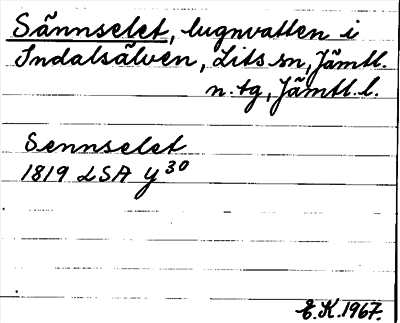 Sännselet, lugnvatten i
Indalsälven, Lits sn, Jämtl.
n. tg, Jämtl. l.
Sennselet
1819 LSA y 30
E.K. 1967.